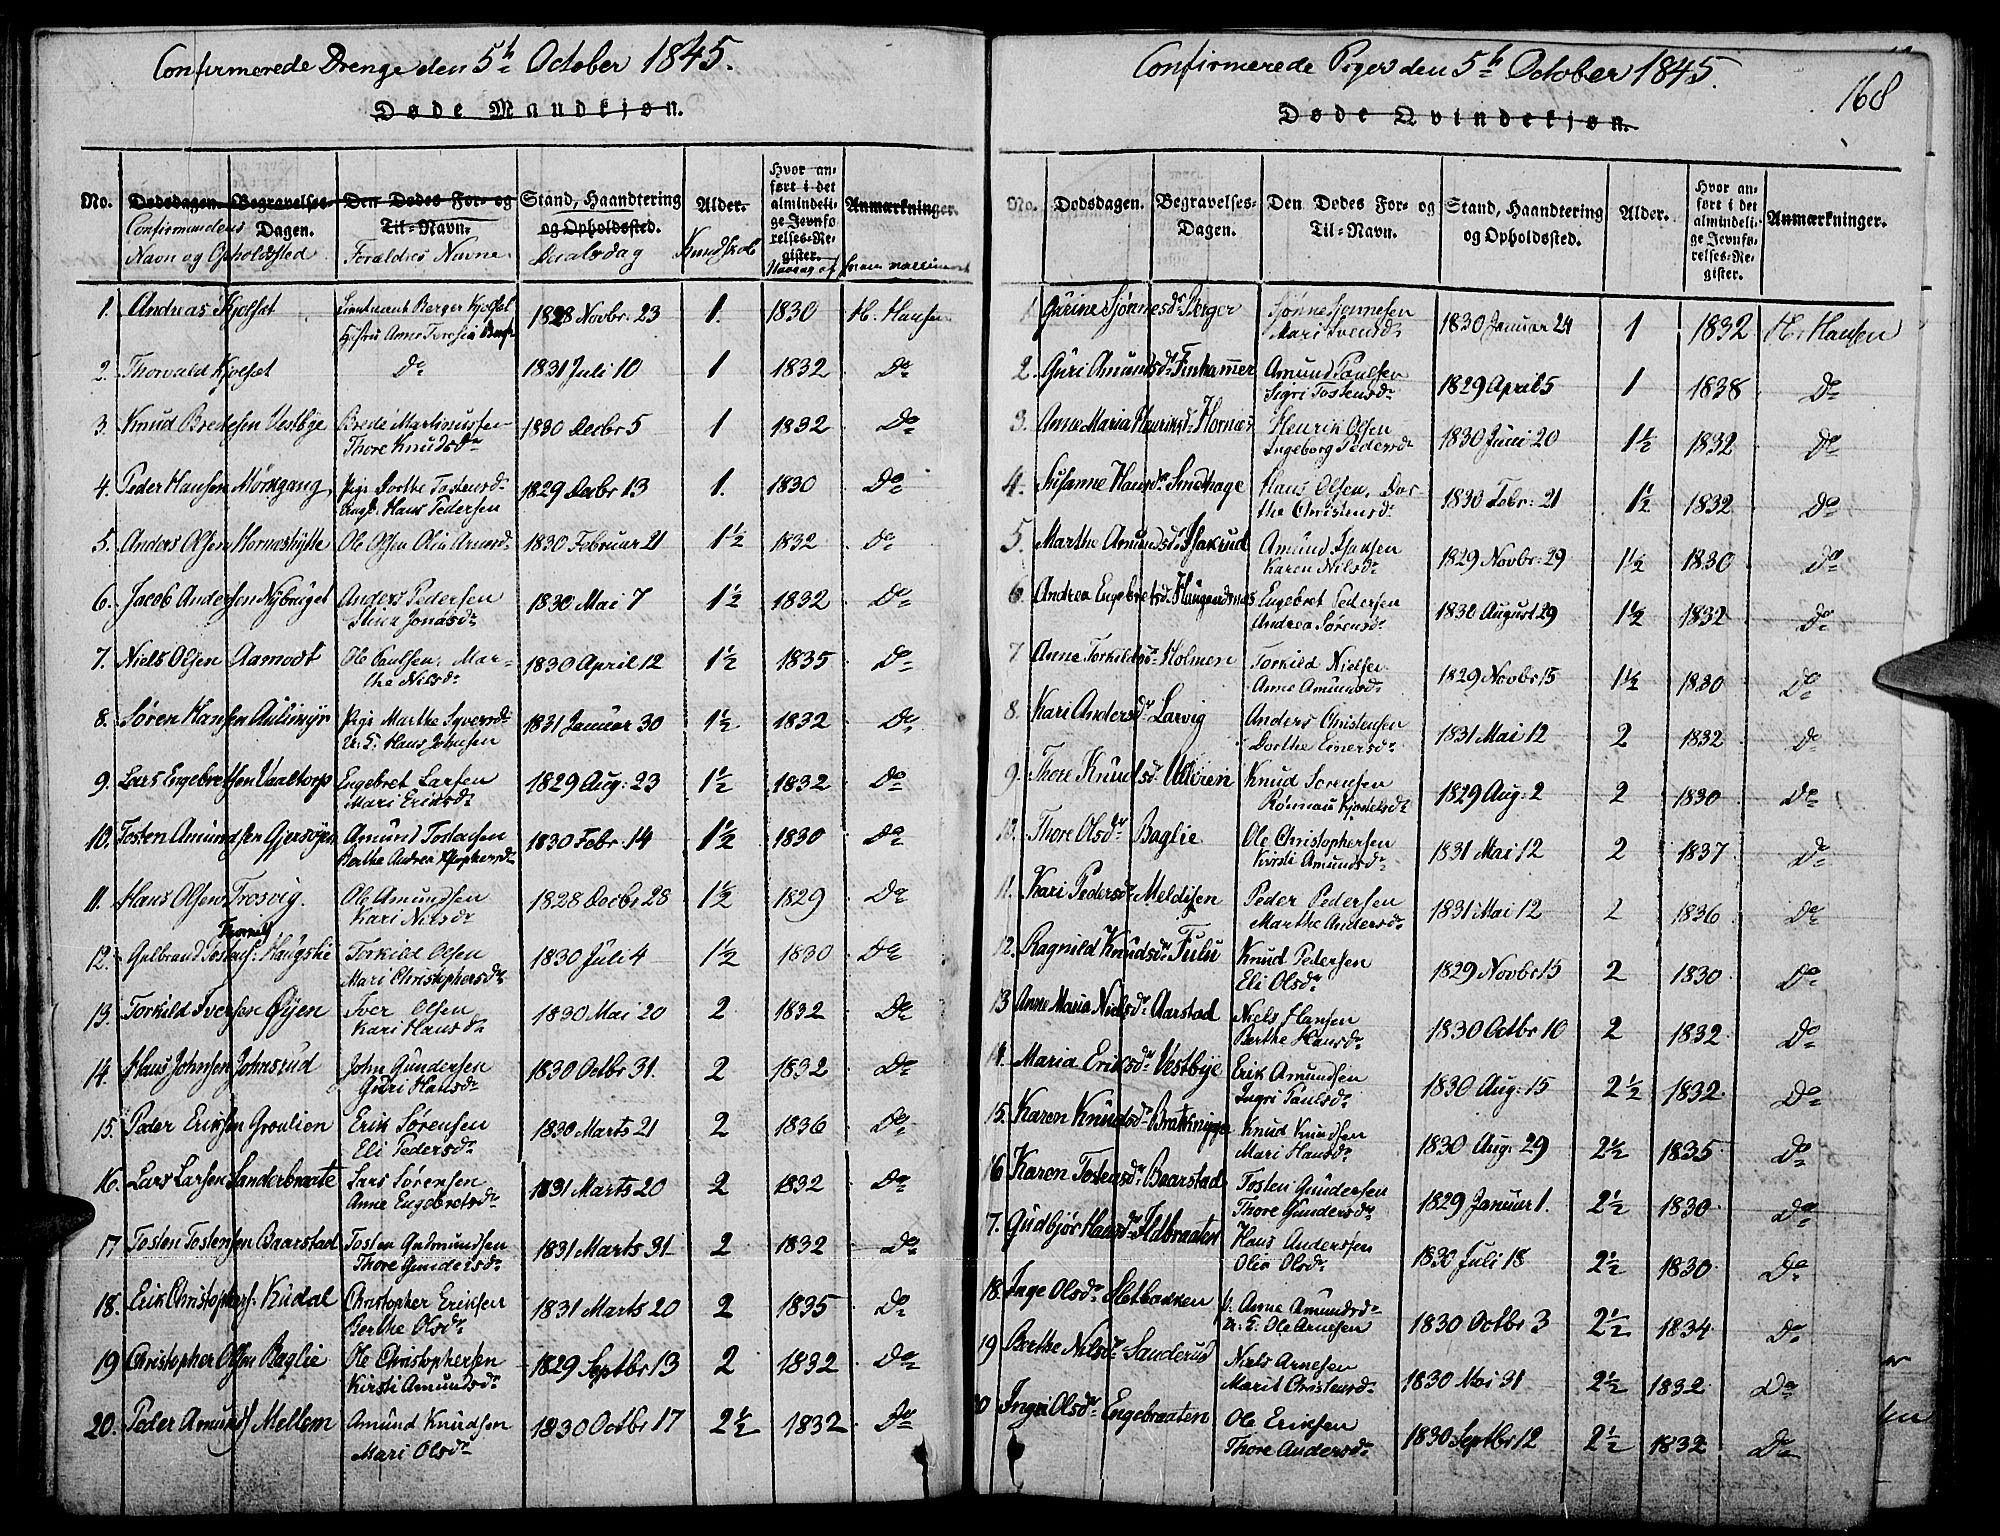 Confirmerede Drenge den 5te October 1845.
Døde Mandkjøn.
No. Dødsdagen. Begravelses-Dagen. Den Dødes For- og Til-Navn. Stand, Haandtering og Opholdssted. Alder. Hvor anført i det almindelige Jevnførelses-Register. Anmærkninger.
Confirmandens Navn og Opholdssted Forældres Navne Daabsdag Kundskab
1. Andreas Kjølset Lieutenant Berger Kjølset 1828 Novbr: 23 1. 1830 H. Hansen
Hustru Anne Teresia
2. Thorvald Kjølset Do 1831 Juli 10 1 1832 Do
3. Knud Bredesen Vestbye Brede Martinussen 1830 Decbr 5 1 1832 Do
Thore Knudsdr
4. Peder Hansen Mørkgang Pige Dorthe Tostensdr 1829 Decbr 13 1. 1830 Do
Ungk. Hans Pedersen
5. Anders Olsen Hornæshytte Ole Olsen Olia Arnesdr 1830 Februar 21 1½ 1832 Do
6. Jacob Andersen Nybruget Anders Pedersen 1830 Mai 7 1½ 1832 Do
Stina Jonasdr
7. Niels Olsen Aamodt Ole Paulsen, Mar- 1830 April 12 1½ 1835 Do
the Nilsdr
8. Søren Hansen Aulimyr Pige Marthe Syversdr 1831 Januar 30 1½ 1832 Do
U. K. Hans Johnsen
9. Lars Engebretsen Vaaltorp Engebret Larsen 1829 Aug: 23 1½ 1832 Do
Mari Ericsdr
10. Tosten Amundsen Gjersøyen Amund Tostensen 1830 Febr: 14 1½ 1830 Do
Berthe Andrea
11. Hans Olsen Trosvig. Ole Amundsen 1828 Decbr 28 1½ 1829 Do
Kari Nilsdr
12. Gulbrand Haugske Torkild Olsen 1830 Juli 4 1½ 1830 Do
Mari Christophersdr
13. Torkild Iversen Øyen Iver Olsen 1830 Mai 20 2 1832 Do
Kari Hansdr
14. Hans Johnsen Johnsrud John Gundersen 1830 Octbr 31. 2 1832 Do
Guri Hansdr
15. Peder Eriksen Groulien Erik Sørensen 1830 Marts 21 2 1836 Do
Eli Pedersdr
16. Lars Larsen Sanderbraate Lars Sørensen 1831 Marts 20 2 1832 Do
Anne Engebretsdr
17 Tosten Tostensen Baarstad Tosten Gudmundsen 1831 Marts 31 2 1832 Do
Thore Gundersdr
18. Erik Christophers. Kudal Christopher Eriksen 1831 Marts 20 2 1835 Do
Berthe Olsdr
19 Christopher Olsen Baglie Ole Christophersen 1829 Septbr 13 2 1832 Do
Kirsti Amundsdr
20. Peder Amunds. Mellem Amund Knudsen 1830 Octbr 17 2½ 1832 Do
Mari Olsdr
Confirmerede Piger den 5te October 1845.
168
Døde Qvindekjøn.
No. Dødsdagen. Begravelses-Dagen. Den Dødes For- og Til-Navn. Stand, Haandtering og Opholdssted. Alder. Hvor anført i det almindelige Jevnførelses-Register. Anmærkninger.
1. Gurine Sjønnesdr Berger Sjønne Jennesen 1830 Januar 24 1 1832 H. Hansen
Mari Svensdr
2. Guri Amundsdr Finhammer Amund Paulsen 1829 April 5 1 1838 Do
Sigri Tostensdr
3. Anne Maria Henriksdr Hornæs Henrik Olsen 1830 Juni 20 1½ 1832 Do
Ingeborg Pedersdr
4. Susanne Hansdr Smedhage Hans Olsen, Dor- 1830 Febr: 21 1½ 1832 Do
the Christensdr
5. Marthe Amundsdr Isakrud Amund Isaksen 1829 Novbr: 29 1½ 1830 Do
Karen Nilsdr
6 Andrea Engebretsdr Haugendsnæs Engebret Pedersen 1830 August 29 1½ 1832 Do
Andrea Sørensdr
7 Anne Torkildsdr Holmen Torkild Nielsen 1829 Novbr 15 1½ 1830 Do
Anne Amundsdr
8. Kari Andersdr Larvig Anders Christensen 1831 Mai 12 2 1832 Do
Dorthe Einersdr
9. Thore Knudsdr Ulleren Knud Sørensen 1829 Aug: 2 2 1830 Do
Rønnau Kjostelsdr
10. Thore Olsdr Baglie Ole Christophersen 1831 Mai 12 2 1837 Do
Kirsti Amundsdr
11. Kari Pedersdr Meldisen Peder Pedersen 1831 Mai 12 2 1836 Do
Marthe Andersdr
12. Ragnild Knudsdr Fulu Knud Pedersen 1829 Novbr 15 2 1830 Do
Eli Olsdr
13 Anne Maria Nielsdr Aarstad Niels Hansen 1830 Octbr 10 2 1832 Do
Berthe Hansdr
14. Maria Eriksdr Vestbye Erik Amundsen 1830 Aug: 15 2½ 1832 Do
Ingri Paulsdr
15. Karen Knudsdr Bratknygge Knud Knudsen 1830 Aug: 29 2½ 1835 Do
Mari Hansdr
16 Karen Tostensdr Baarstad Tosten Gundersen 1829 Januar 1. 2½ 1830 Do
Thore Gundersdr
7. Gudbjør Hansdr Ildbraaten Hans Anderssen 1830 Juli 18 2½ 1830 Do
Olia Olsdr
18. Inge Olsdr Sletbakken P. Anne Amundsdr 1830 Octbr 3 2½ 1834 Do
U. K. Ole Arnesen
19 Berthe Nilsdr Sanderud Niels Arnesen 1830 Mai 31 2½ 1832 Do
Marit Christensdr
20 Ingri Olsdr Engebraaten Ole Eriksen 1830 Septbr 12 2½ 1832 Do
Thore Andersdr